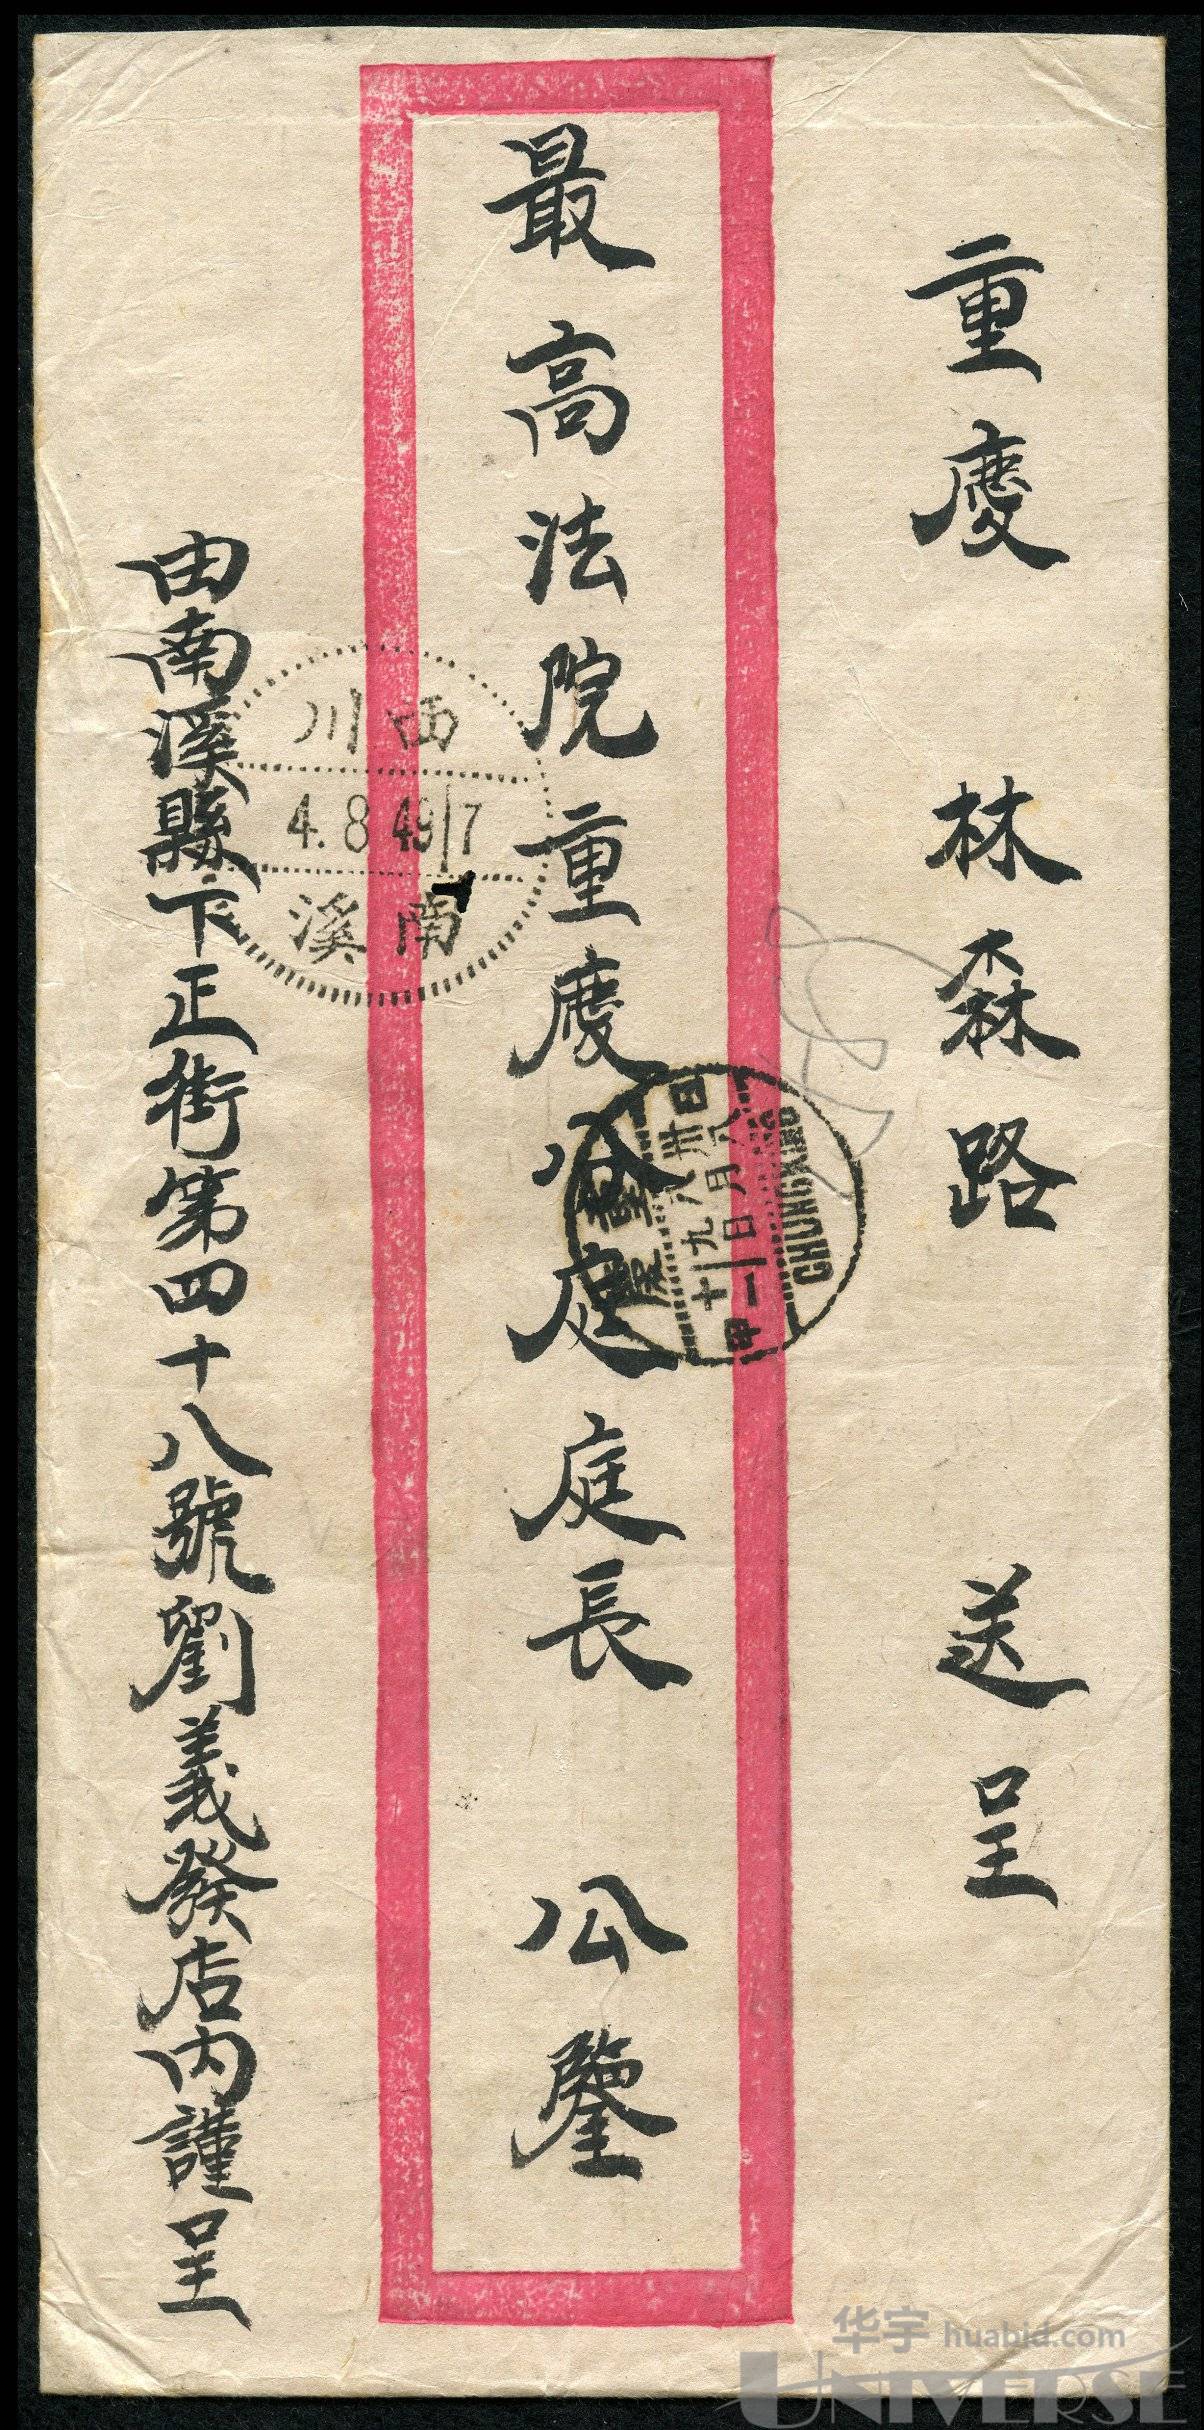 重慶 林森路 送呈
最高法院重慶分庭庭長 公鑒
由南溪縣下正街第四十八號劉義發店內謹呈
西川
4.8.49|7
南溪
重慶
卅八年八月
十九日
CHUNGKING
华宇 huabid.com
UNIVERSE